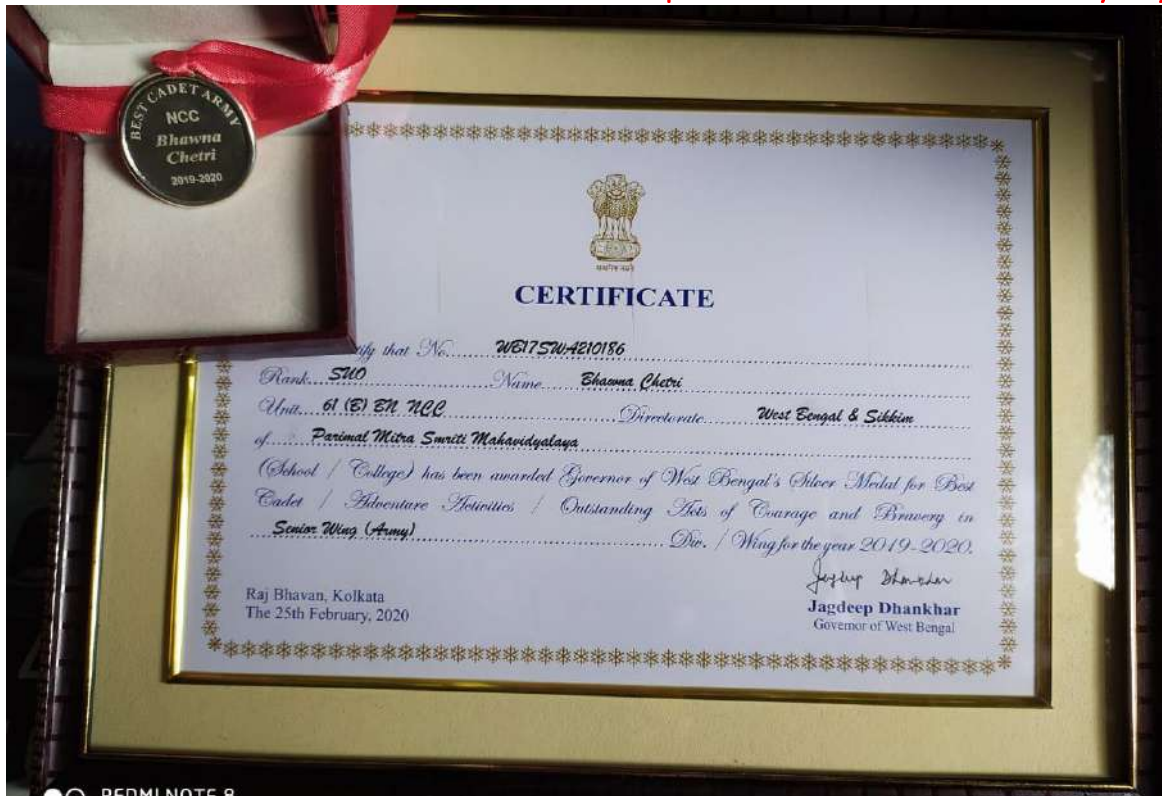 BEST CADET ARMY
NCC
Bhawna
Chetri
2019-2020
सत्यमेव जयते
CERTIFICATE
that No. WB17SWA210186
Rank SUO Name Bhawna Chetri
Unit 61 (B) BN NCC Directorate West Bengal & Sikkim
of Parimal Mitra Smriti Mahavidyalaya
(School / College) has been awarded Governor of West Bengal's Silver Medal for Best
Cadet / Adventure Activities / Outstanding Acts of Courage and Bravery in
Senior Wing (Army) Div. / Wing for the year 2019-2020.
Jagdeep Dhankhar
Raj Bhavan, Kolkata
The 25th February, 2020
Jagdeep Dhankhar
Governor of West Bengal
REDMI NOTE 8